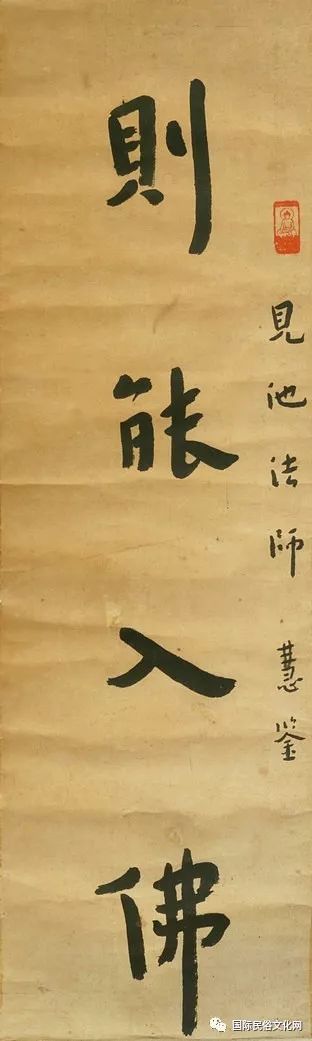 見池法師 慧鋻
則能入佛
国际民俗文化网